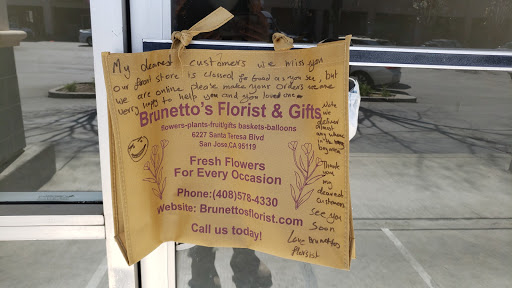 My dearest customers we miss you
our front store is closed for Good as you see, but
we are online please make your orders we are
very happy to help you and your loved ones
Brunetto's Florist & Gifts
flowers-plants-fruit/gifts baskets-balloons
6227 Santa Teresa Blvd
San Jose,CA 95119
Fresh Flowers
For Every Occasion
Phone:(408)578-4330
Website: Brunettosflorist.com
Call us today!
Note
we
deliver
almost
any where
in the bay
Thank
you
my
dearest
customers
see you
Soon
Love Brunettos
florsist